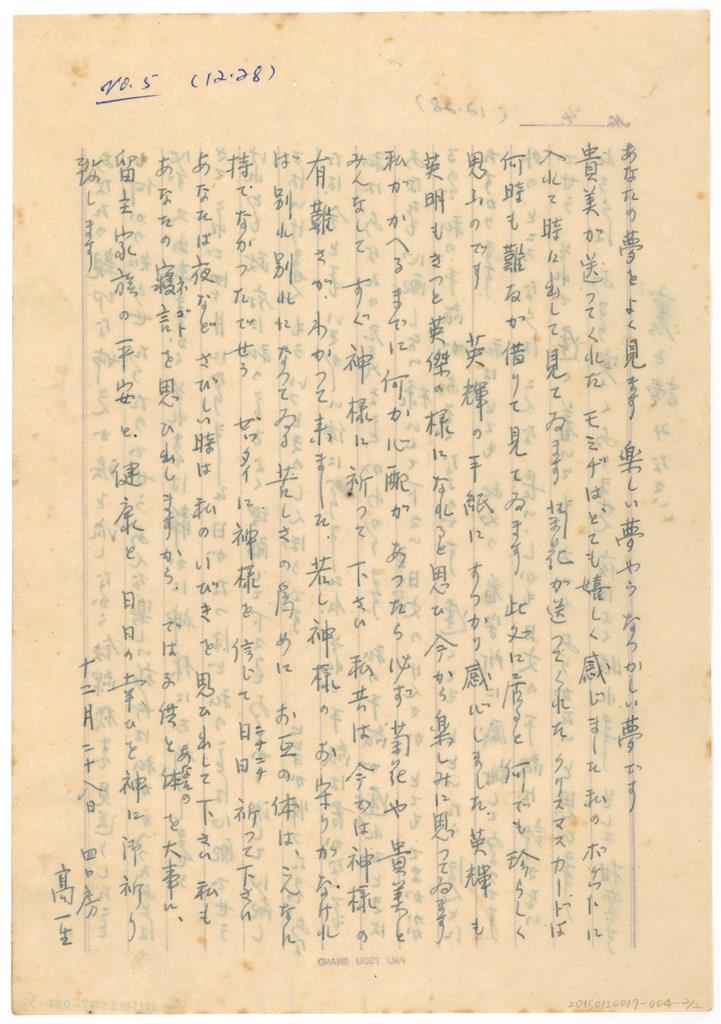 No. 5 (12.28)
あなたの夢をよく見ます 楽しい夢やらなつかしい夢です
貴美が送つてくれたモミヂは、とても嬉しく感じました 私のポケットに
入れて時に出して見てゐます 菊花が送つてくれたクリスマスカードは
何時も難友が借りて見てゐます。此処に居ると何でも珍らしく
思ふのです 英輝の手紙にすつかり感心しました。英輝も
英明もきつと英傑の様になれると思ひ 今から楽しみに思つてゐます
私がかへるまでに何か心配があつたら必ず菊花や貴美と
みんなしてすぐ神様に祈つて下さい 私共は今では神様の
有難さがわかつて来ました。若し神様のお守りがなければ
ば別れ別れになつてゐる苦しさの為めに お互の体は、こんなに
持てなかつたでせう ゼツタイに神様を信じて日日 ニチニチ 祈つて下さい
あなたは夜などさびしい時は私のいびきを思ひ出して下さい 私も
あなたの寝言 ネゴト を思ひ出しますから。では子供とあなたの体を大事に、
留主家族の平安と、健康と日日の幸ひを神に御祈り
致します
十二月二十八日 四口房
高一生
PAU TSOU BRAND
20150120017-004-2/2